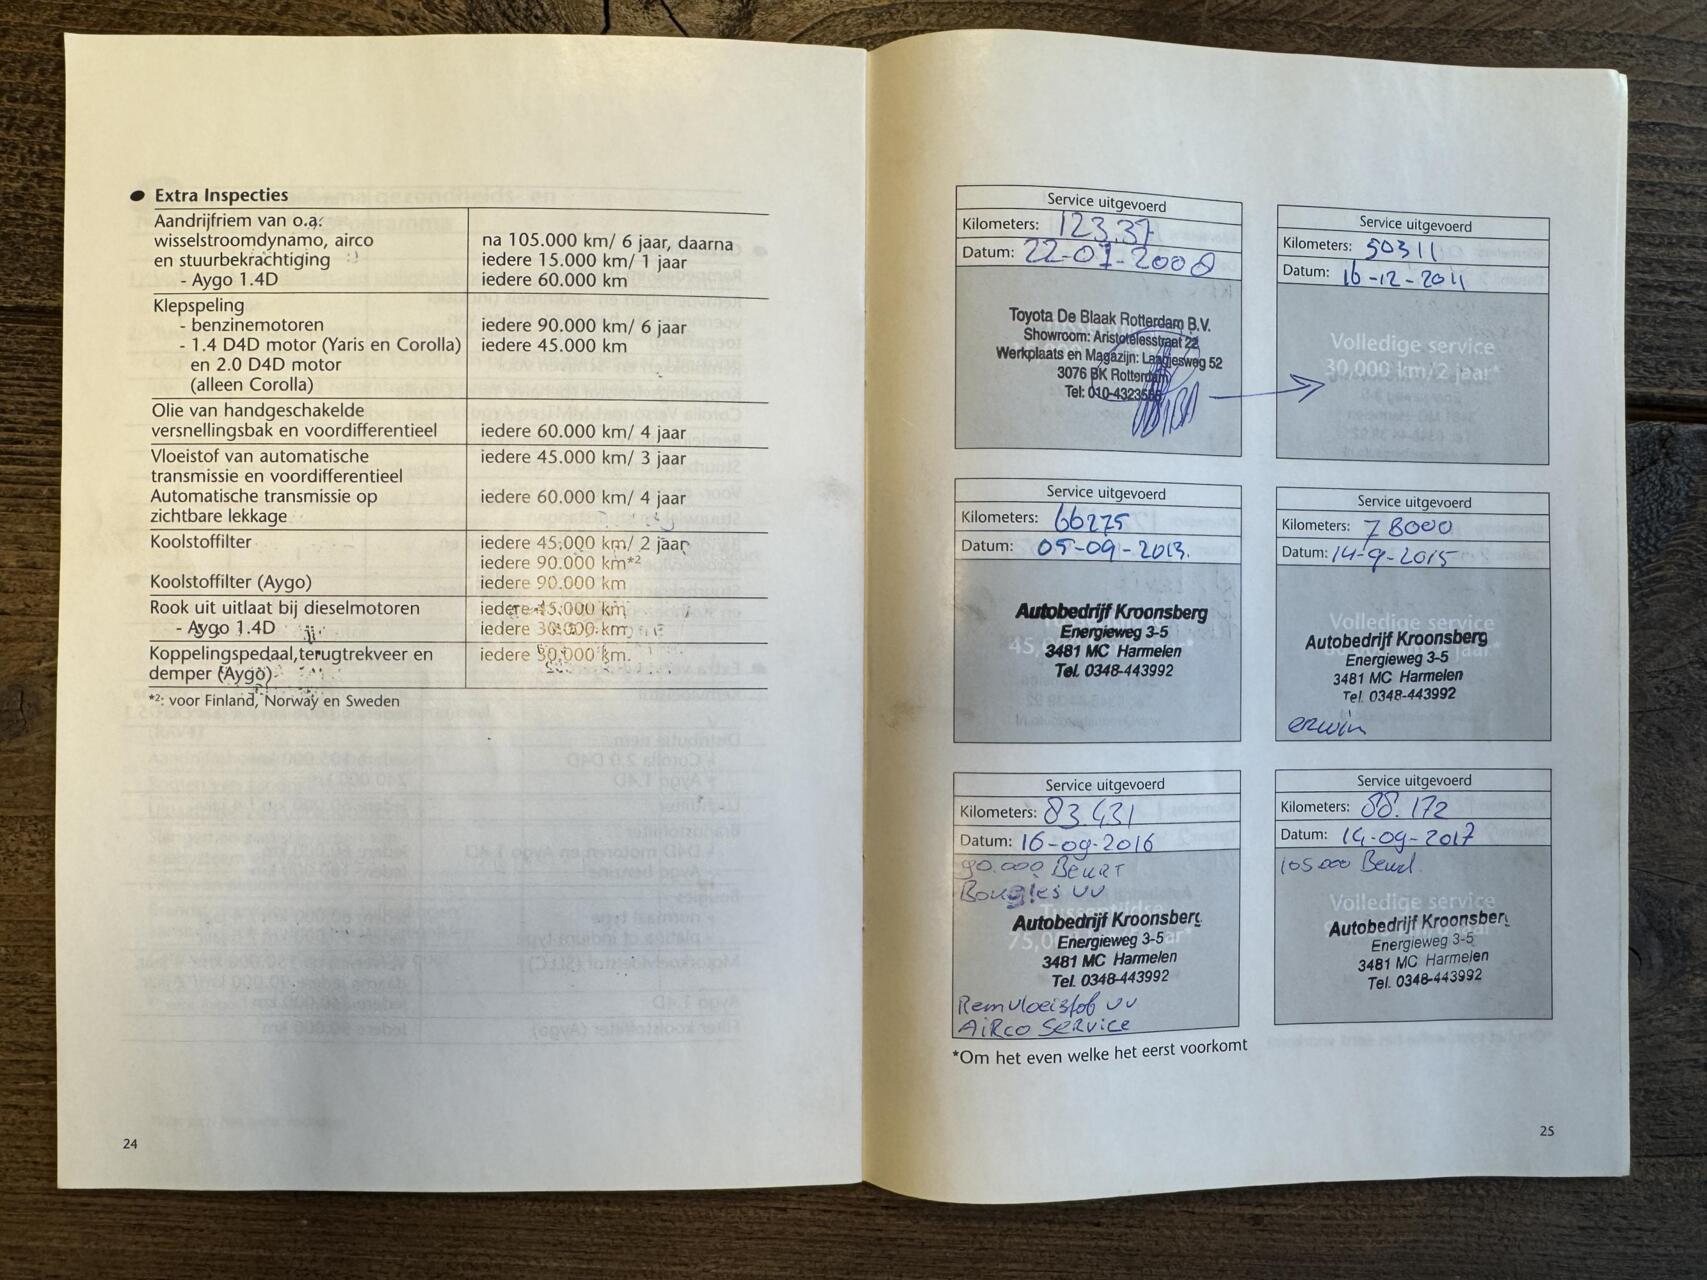 Extra Inspecties
Aandrijfriem van o.a:
wisselstroomdynamo, airco na 105.000 km/ 6 jaar, daarna
en stuurbekrachtiging iedere 15.000 km/ 1 jaar
- Aygo 1.4D iedere 60.000 km
Klepspeling
- benzinemotoren iedere 90.000 km/ 6 jaar
- 1.4 D4D motor (Yaris en Corolla) iedere 45.000 km
en 2.0 D4D motor
(alleen Corolla)
Olie van handgeschakelde
versnellingsbak en voordifferentieel iedere 60.000 km/ 4 jaar
Vloeistof van automatische iedere 45.000 km/ 3 jaar
transmissie en voordifferentieel
Automatische transmissie op iedere 60.000 km/ 4 jaar
zichtbare lekkage
Koolstoffilter iedere 45.000 km/ 2 jaar
iedere 90.000 km*2
Koolstoffilter (Aygo) iedere 90.000 km
Rook uit uitlaat bij dieselmotoren iedere 45.000 km
- Aygo 1.4D iedere 30.000 km
Koppelingspedaal,terugtrekveer en iedere 30.000 km.
demper (Aygo)
*2: voor Finland, Norway en Sweden
24
Service uitgevoerd
Kilometers: 123.37
Datum: 22-07-2008
Toyota De Blaak Rotterdam B.V.
Showroom: Aristotelesstraat 22
Werkplaats en Magazijn: Laagjesweg 52
3076 BK Rotterdam
Tel: 010-43235
Service uitgevoerd
Kilometers: 50311
Datum: 16-12-2011
Volledige service
30,000 km/2 jaar*
Service uitgevoerd
Kilometers: 66275
Datum: 05-09-2013.
Autobedrijf Kroonsberg
Energieweg 3-5
3481 MC Harmelen
Tel. 0348-443992
Service uitgevoerd
Kilometers: 78000
Datum: 14-9-2015
Volledige service
Autobedrijf Kroonsberg
Energieweg 3-5
3481 MC Harmelen
Tel. 0348-443992
erwin
Service uitgevoerd
Kilometers: 83.431
Datum: 16-09-2016
90.000 Beurt
Bougies vv
Tussentijdse
Autobedrijf Kroonsberg
75,000
Energieweg 3-5
3481 MC Harmelen
Tel. 0348-443992
Remvloeistof vv
AiRco SeRvice
Service uitgevoerd
Kilometers: 88.172
Datum: 14-09-2017
105.000 Beurt.
Volledige service
Autobedrijf Kroonsberg
Energieweg 3-5
3481 MC Harmelen
Tel. 0348-443992
*Om het even welke het eerst voorkomt
25